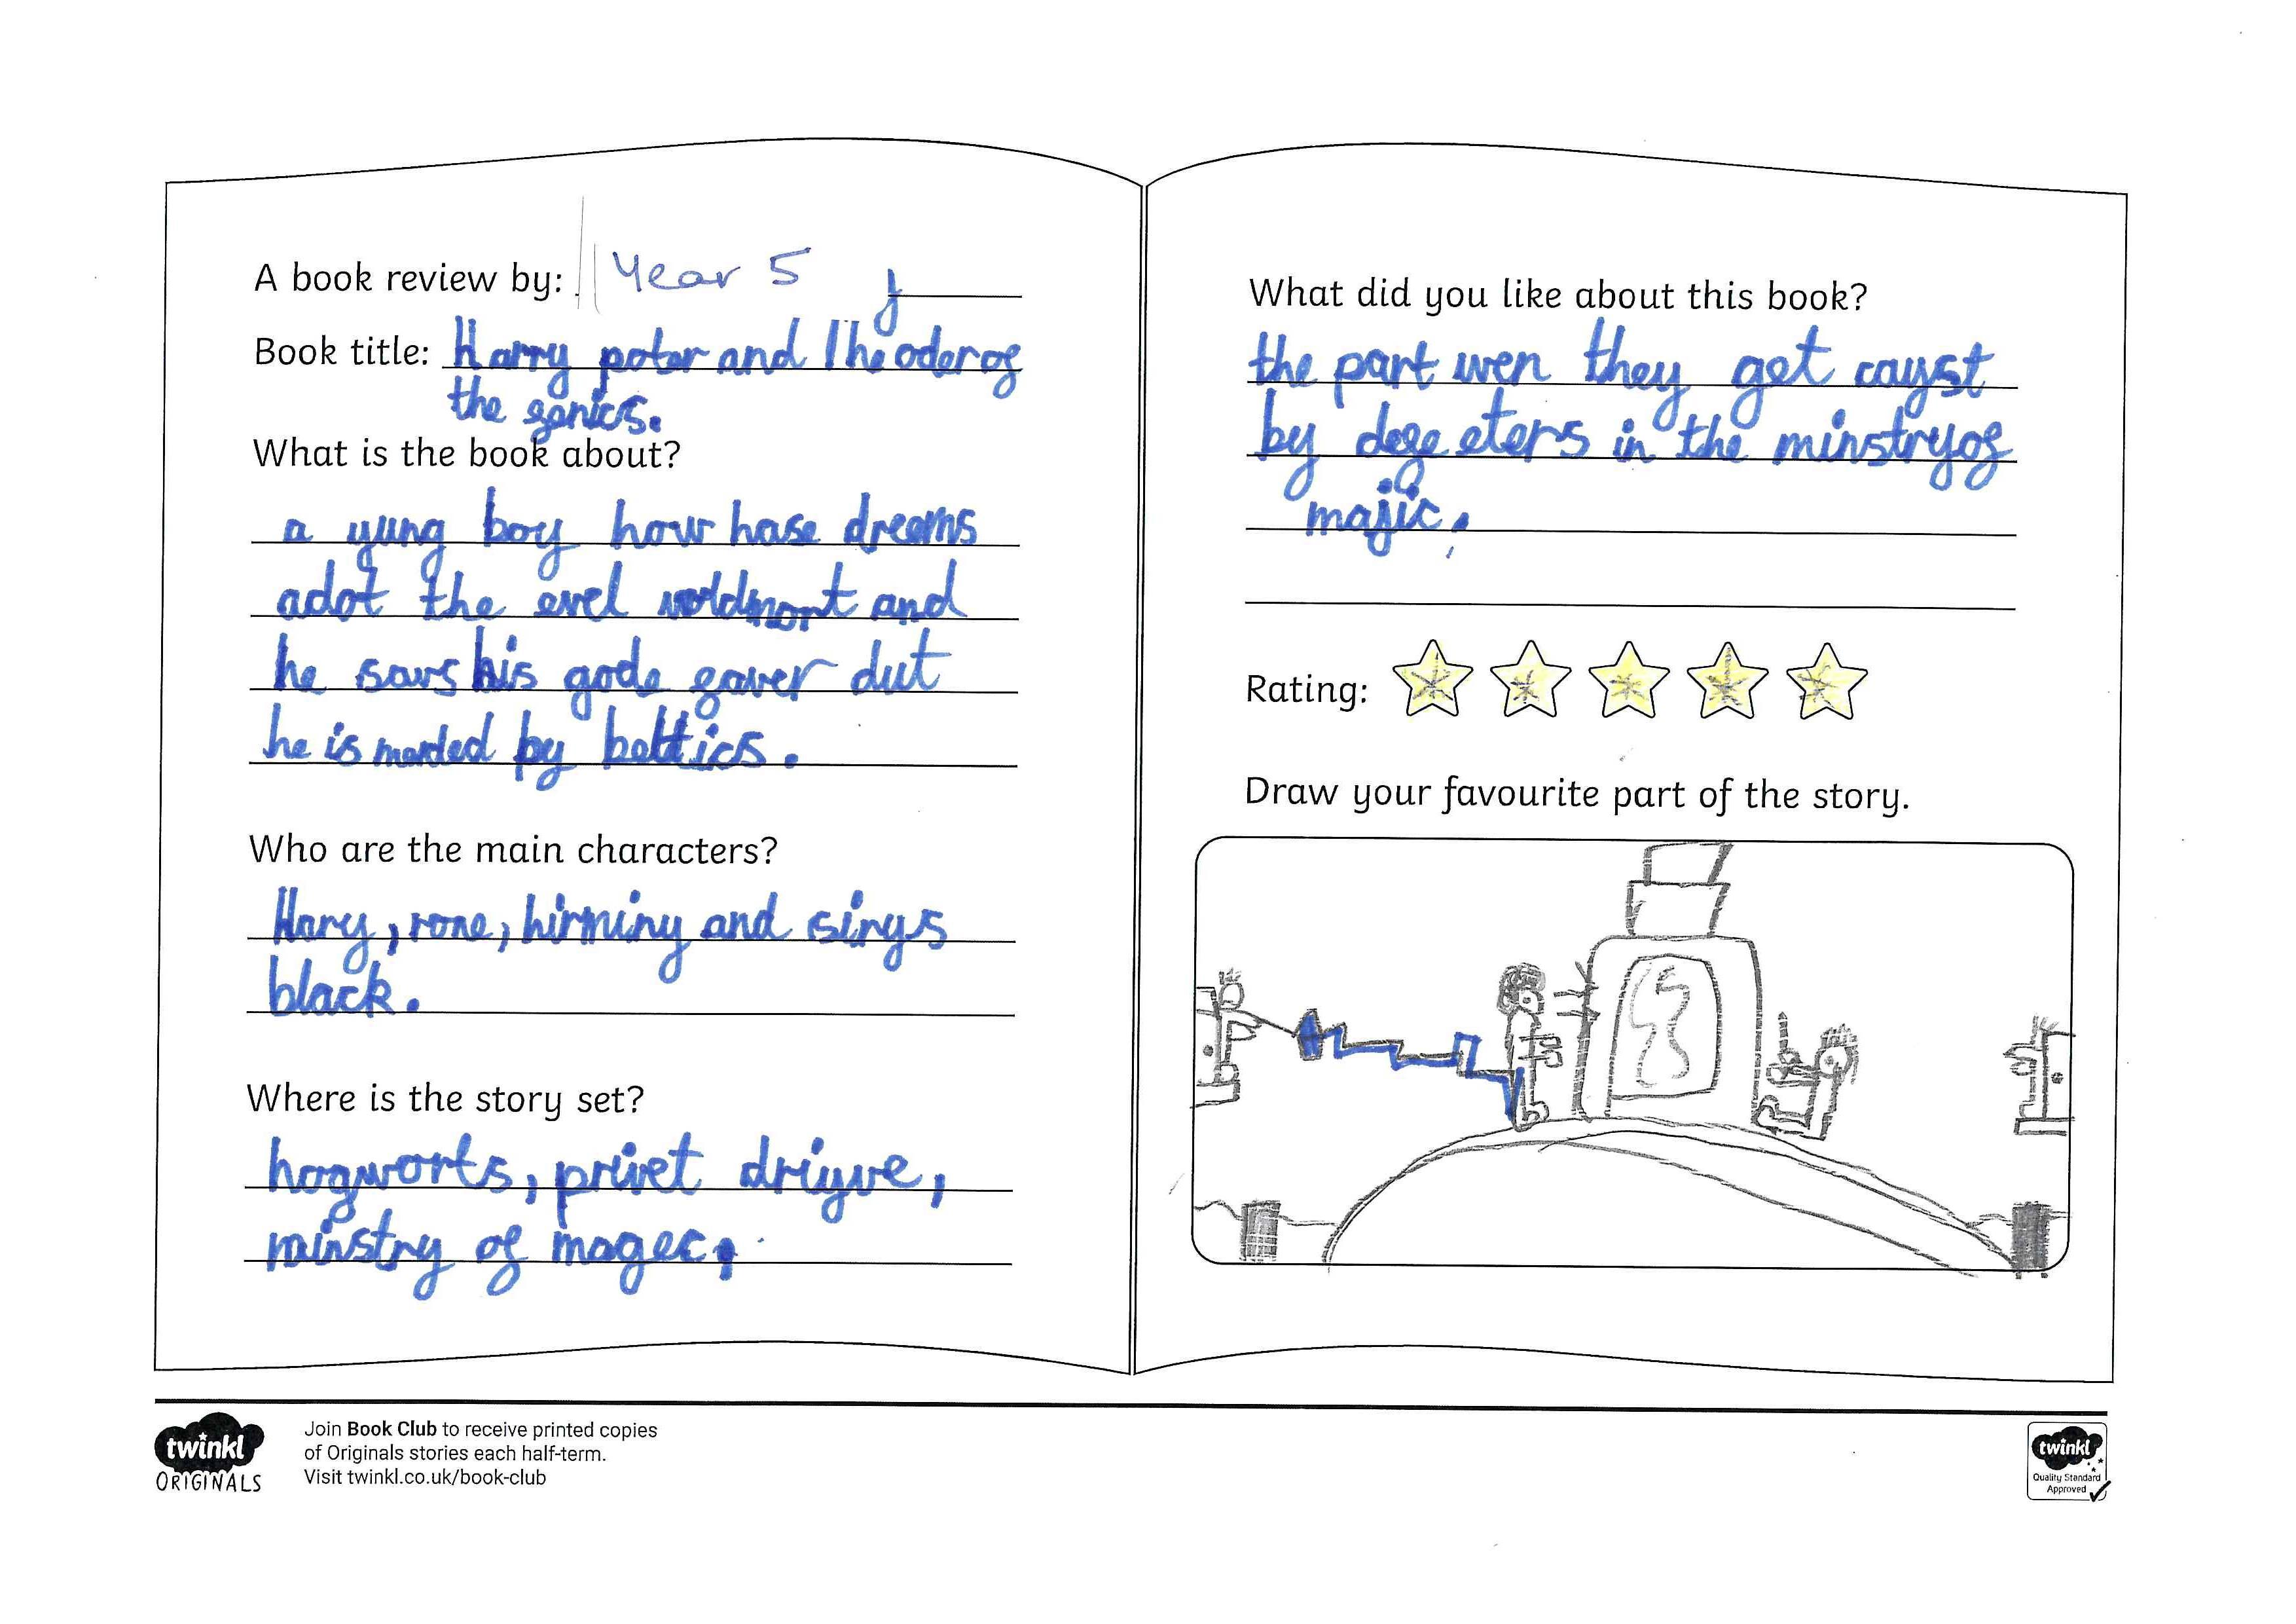 A book review by: Year 5
Book title: Harry poter and The oder of
the fenics.
What is the book about?
a yung boy how hase dreems
adot the evel voldmort and
he savs his gode faver dut
he is merded by belltics.
Who are the main characters?
Hary, rone, hirminy and sirys
black.
Where is the story set?
hogworts, privet driyve,
minstry of magec.
What did you like about this book?
the part wen they get cayst
by in the minstry of
majic.
Rating:
Draw your favourite part of the story.
twinkl
ORIGINALS
Join Book Club to receive printed copies
of Originals stories each half-term.
Visit twinkl.co.uk/book-club
twinkl
Quality Standard
Approved